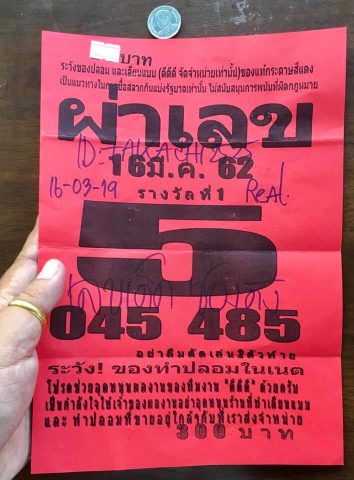 บาท
ระวังของปลอม และเลียนแบบ (ดีดีดี จัดจำหน่ายเท่านั้น)ของแท้กระดาษสีแดง
เป็นแนวทางในการซื้อสลากกินแบ่งรัฐบาลเท่านั้น ไม่สนับสนุนการพนันที่ผิดกฎหมาย
ผ่าเลข
16 มี.ค. 62
16-03-19
รางวัลที่1
Real.
5
045 485
อย่าลืมตัดเล่น2ตัวท้าย
ระวัง! ของทำปลอมในเนต
โปรดช่วยอุดหนุนผลงานของทีมงาน "ดีดีดี" ด้วยครับ
เป็นกำลังใจให้เจ้าของผลงานอย่าอุดหนุนร้านที่ทำเลียนแบบ
และ ทำปลอมที่ขายอยู่ใกล้กับที่เราส่งจำหน่าย
300 บาท